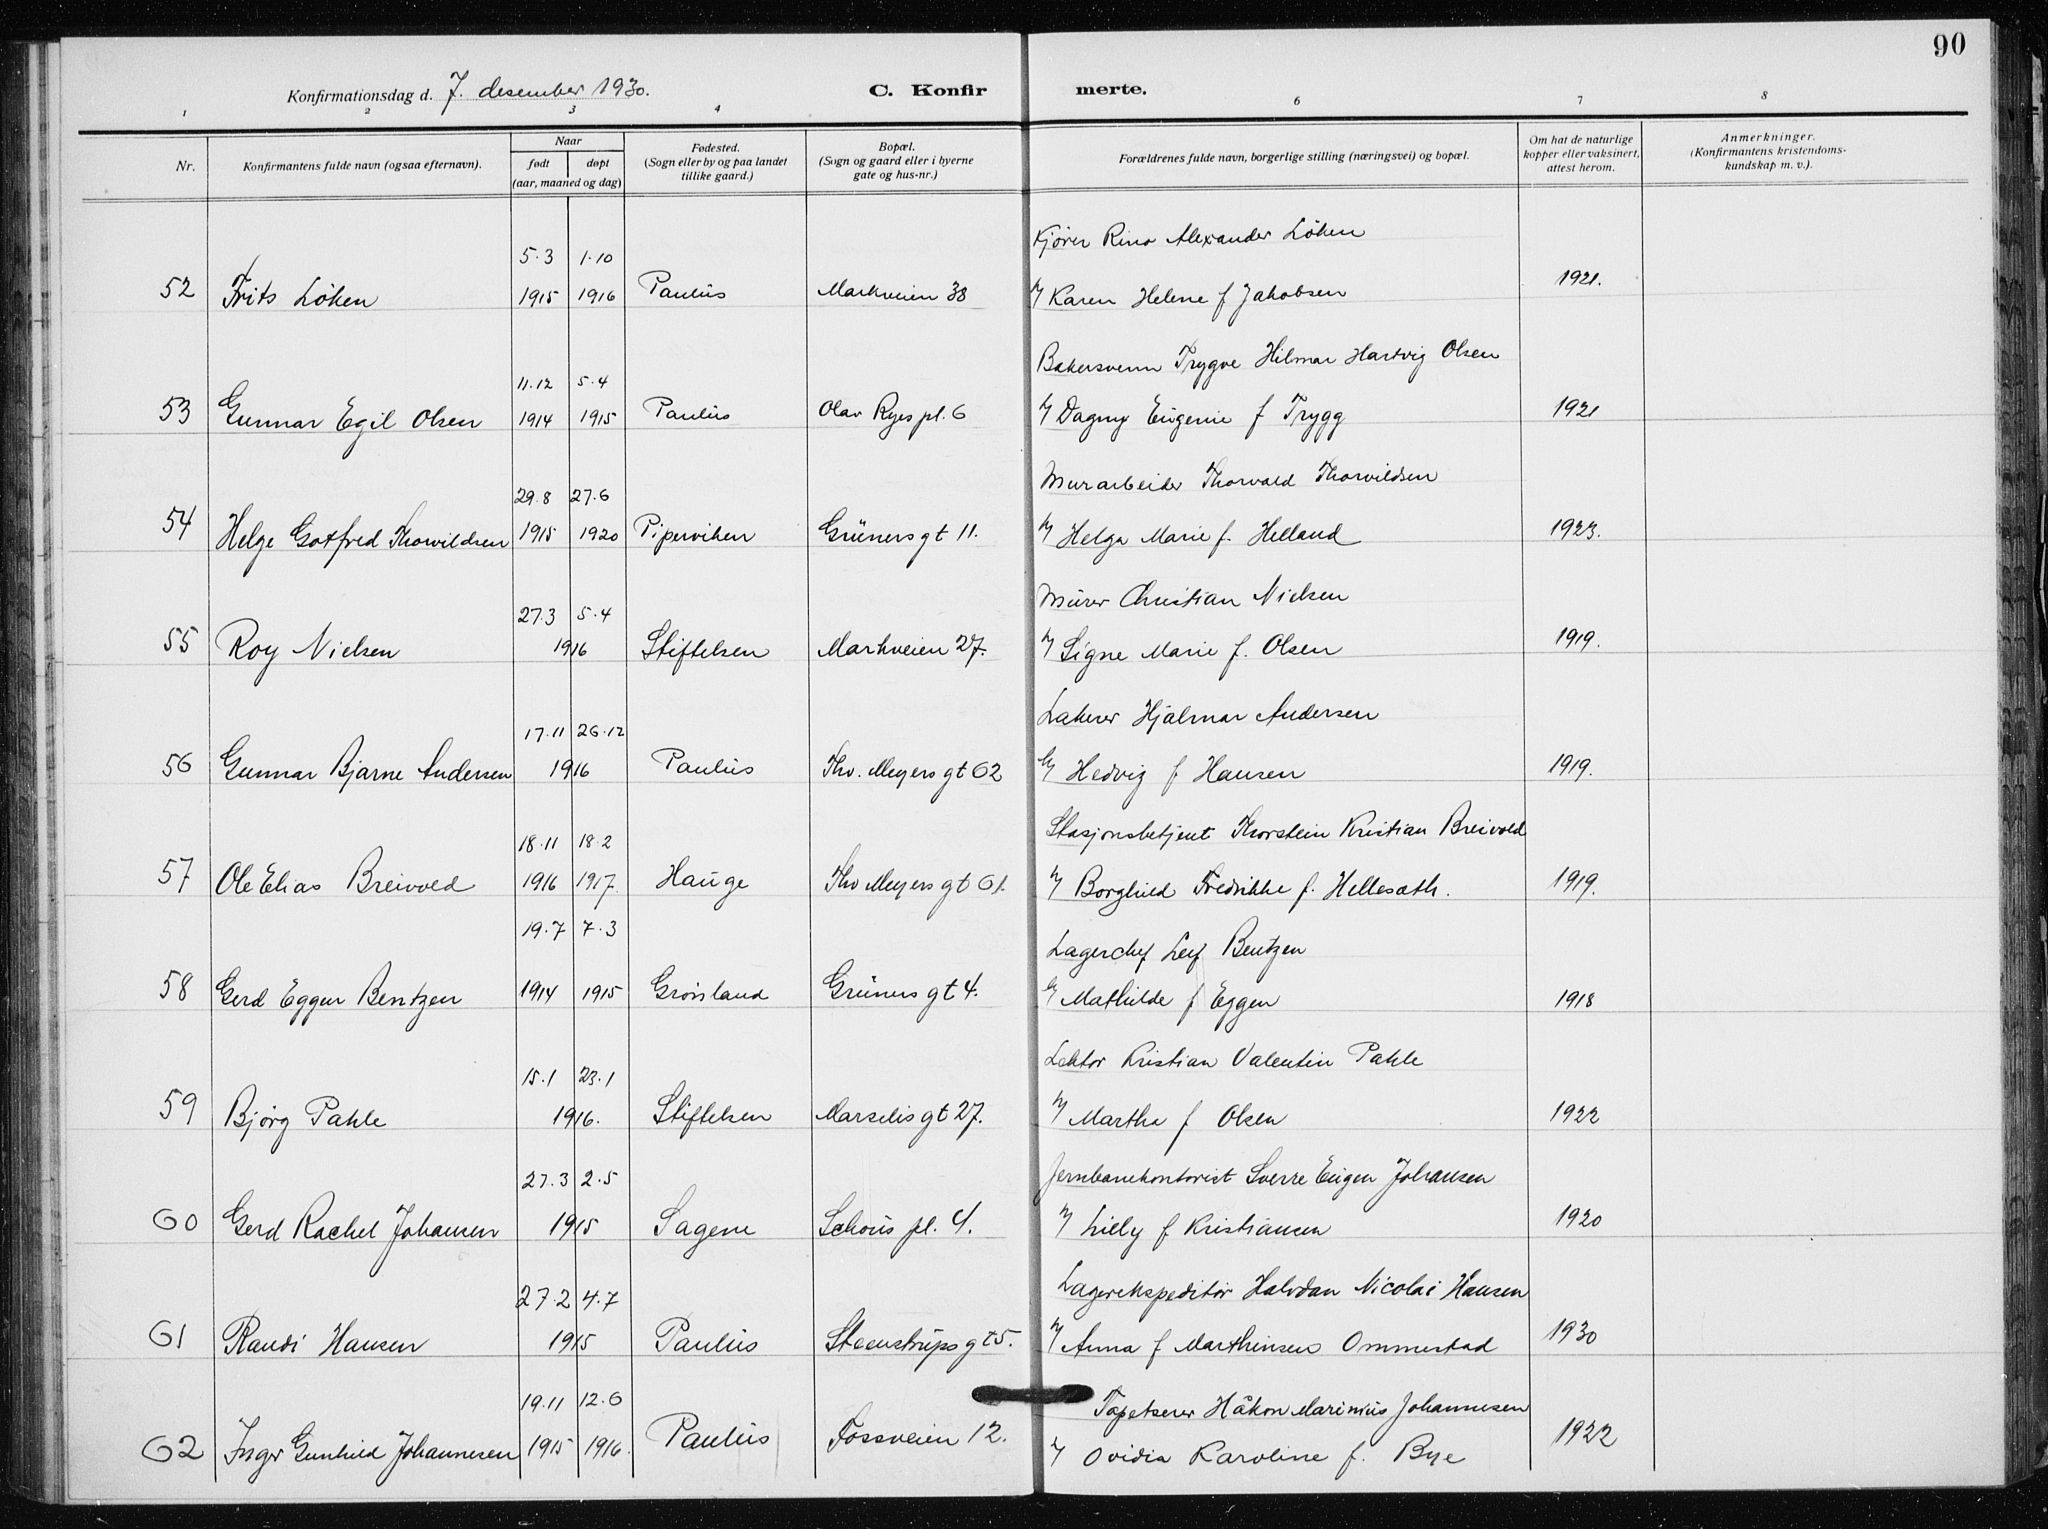 90
Konfirmationsdag d. 7. desember 1930. C. Konfirmerte.
1 2 3 4 6 7 8
Nr. Konfirmantens fulde navn (ogsaa efternavn). Naar født døpt (aar, maaned og dag) Fødested. (Sogn eller by og paa landet tillike gaard.) Bopæl. (Sogn og gaard eller i byerne gate og hus-nr.) Forældrenes fulde navn, borgerlige stilling (næringsvei) og bopæl. Om hat de naturlige kopper eller vaksinert, attest herom. Anmerkninger. (Konfirmantens kristendoms-kundskap m. v.).
5.3 1.10 Kjører Rino Alexander Löken
52 Frits Löken 1915 1916 Paulus Markveien 38 Karen Helene f Jakobsen 1921.
11.12 5.4 Bakersvenn Trygve Hilmar Hartvig Olsen
53 Gunnar Egil Olsen 1914 1915 Paulus Olav Ryes pl. 6 Dagny Eugenie f Trygg 1921
29.8 27.6 Murarbeider Thorvald Thorvildsen
54 Helge Gotfred Thorvildsen 1915 1920 Piperviken Grüners gt 11. Helga Marie f. Helland 1923.
27.3 5.4 Murer Christian Nielsen
55 Roy Nielsen 1916 Stiftelsen Markveien 27. Signe Marie f. Olsen 1919.
17.11 26.12 Lakerer Hjalmar Andersen
56 Gunnar Bjarne Andersen 1916 Paulus Thv. Meyers gt 62 Hedvig f Hansen 1919.
18.11 18.2 Stasjonsbetjent Thorstein Kristian Breivold
57 Ole Elias Breivold 1916 1917. Hauge Thv Meyers gt 61. Borghild Fredrikke f. Hellesæth. 1919.
19.7 7.3 Lagerchef Leif Bentzen
58 Gerd Eggen Bentzen 1914 1915 Grønland Grüners gt 4. Mathilde f Eggen 1918
15.1 23.1 Lektor Kristian Valentin Pahle
59 Bjørg Pahle 1916. Stiftelsen Marselis gt 27. Martha f Olsen 1922
27.3 2.5 Jernbanekontorist Sverre Eugen Johansen
60 Gerd Rachel Johansen 1915 Sagene Schous pl. 4. Lilly f Kristiansen 1920
27.2 4.7 Lagerekspeditör Halvdan Nicolai Hansen
61 Randi Hansen 1915 Paulus Steenstrups gt 5. Anna f Marthinsen Ommestad 1930
19.11 12.6 Tapetserer Håkon Marinius Johannesen
62 Inger Gunhild Johannesen 1915 1916. Paulus Fossveien 12. Ovidia Karoline f. Bye 1922